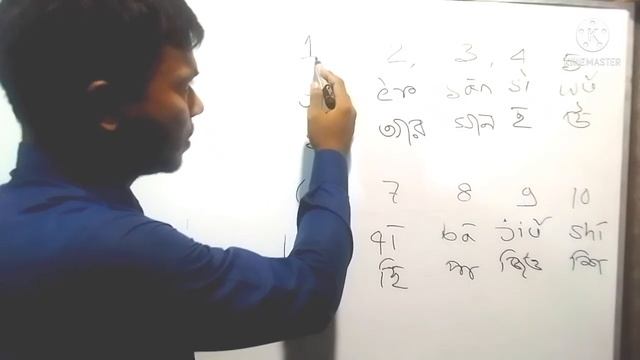 1, 2, 3, 4 5
èr sān sì wǔ
আর সান ই উ
7 8 9 10
qī bā jiǔ shí
ছি পা জিও শি
KINEMASTER